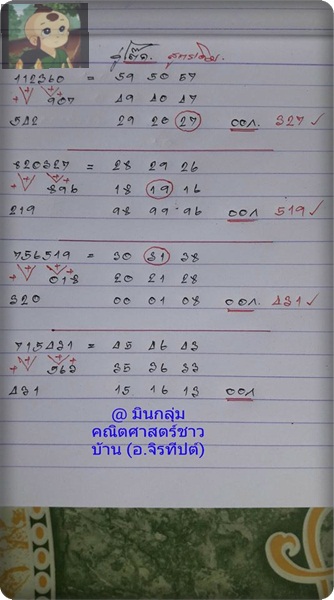 คู่โต๊ด สูตรเดิม.
112360 = 59 50 57
+ + + 907 49 40 47
542 29 20 27 ออก 327 ✓
820327 = 28 29 26
+ + + 896 18 19 16
219 98 99 96 ออก 519 ✓
756519 = 30 31 38
+ + + 018 20 21 28
320 00 01 08 ออก. 431 ✓
715431 = 45 46 43
+ + + 563 35 36 33
431 15 16 13 ออก
@ มินกลุ่ม
คณิตศาสตร์ชาว
บ้าน (อ.จิรทีปต์)